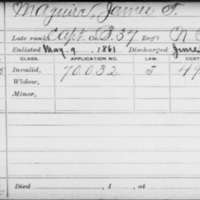 Maguire, James T.
Late rank Capt Co. B, 37 Reg't N
Enlisted May 9, 1861 Discharged June
CLASS. APPLICATION NO. LAW.
Invalid, 70032
Widow,
Minor,
Died , 1 , at